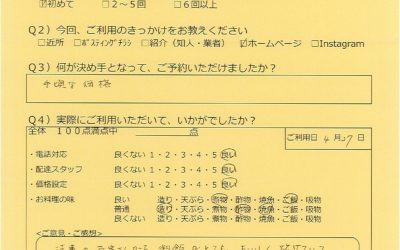 ☑初めて □2～5回 □6回以上
Q2）今回、ご利用のきっかけをお教えください
□近所 □ポスティングチラシ □紹介（知人・業者） ☑ホームページ □Instagram
Q3）何が決め手となって、ご予約いただけましたか？
手頃な価格
Q4）実際にご利用いただいて、いかがでしたか？
全体 １００点満点中 点
ご利用日 4月27日
・電話対応 良くない 1・2・3・4・5 良い
・配達スタッフ 良くない 1・2・3・4・5 良い
・価格設定 良くない 1・2・3・4・5 良い
・お料理の味 良い 造り・天ぷら・煮物・酢物・焼魚・ご飯・吸物
普通 造り・天ぷら・煮物・酢物・焼魚・ご飯・吸物
良くない 造り・天ぷら・煮物・酢物・焼魚・ご飯・吸物
＜ご意見・ご感想＞